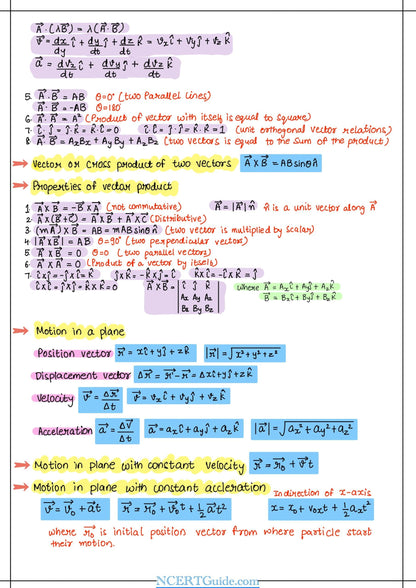 A⃗ . (λB⃗) = λ(A⃗ . B⃗)
v⃗ = dx/dy î + dy/dt ĵ + dz/dt k̂ = vx î + vy ĵ + vz k̂
a⃗ = dvz/dt î + dvy/dt ĵ + dvz/dt k̂
5. A⃗ . B⃗ = AB θ=0° (two Parallel lines)
A⃗ . B⃗ = -AB θ=180°
6. A⃗ . A⃗ = A² (Product of vector with itself is equal to square)
7. î . ĵ = ĵ . k̂ = k̂ . î = 0 î . î = ĵ . ĵ = k̂ . k̂ = 1 (unit orthogonal vector relations)
8. A⃗ . B⃗ = AxBx + AyBy + AzBz (two vectors is equal to the sum of the product)
Vector or cross product of two vectors A⃗ x B⃗ = AB sinθ n̂
Properties of vector product
1. A⃗ x B⃗ = -B⃗ x A⃗ (not commutative) A⃗ = |A⃗| n̂ n̂ is a unit vector along A⃗
2. A⃗ x (B⃗ + C⃗) = A⃗ x B⃗ + A⃗ x C⃗ (Distributive)
3. (mA⃗) x B⃗ = AB = mAB sinθ n̂ (two vector is multiplied by scalar)
4. |A⃗ x B⃗| = AB θ=90° (two perpendicular vectors)
5. A⃗ x B⃗ = 0 θ=0 (two parallel vectors)
6. A⃗ x A⃗ = 0 (Product of a vector by itself)
7. î x ĵ = -ĵ x î = k̂ ĵ x k̂ = -k̂ x ĵ = î k̂ x î = -î x k̂ = ĵ
î x î = ĵ x ĵ = k̂ x k̂ = 0 A⃗ x B⃗ = | î ĵ k̂ | where A⃗ = Ax î + Ay ĵ + Az k̂
| Ax Ay Az | B⃗ = Bx î + By ĵ + Bz k̂
| Bx By Bz |
Motion in a plane
Position vector r⃗ = xî + yĵ + zk̂ |r⃗| = √x² + y² + z²
Displacement vector Δr⃗ = r⃗' - r⃗ = Δxî + yĵ + zk̂
Velocity v⃗ = Δr⃗/Δt v⃗ = vx î + vy ĵ + vz k̂
Acceleration a⃗ = Δv⃗/Δt a⃗ = ax î + ay ĵ + az k̂ |a⃗| = √ax² + ay² + az²
Motion in plane with constant velocity r⃗ = r⃗₀ + v⃗t
Motion in plane with constant accleration In direction of x-axis
v⃗ = v⃗₀ + a⃗t r⃗ = r⃗₀ + v⃗₀t + 1/2 a⃗t² x = x₀ + v₀xt + 1/2 axt²
where r⃗₀ is initial position vector from where particle start
their motion.
NCERTGuide.com